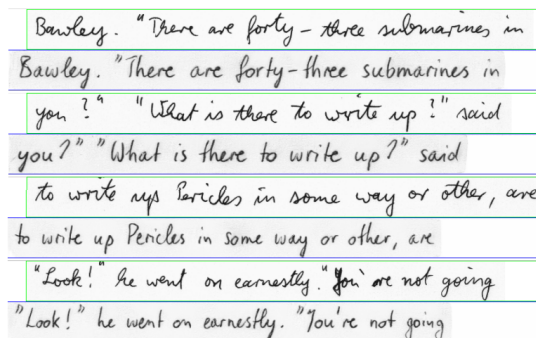 Bawley. "There are forty-three submarines in
Bawley. "There are forty-three submarines in
you?" "What is there to write up?" said
you?" "What is there to write up?" said
to write up Pericles in some way or other, are
to write up Pericles in some way or other, are
"Look!" he went on earnestly. "You're not going
"Look!" he went on earnestly. "You're not going